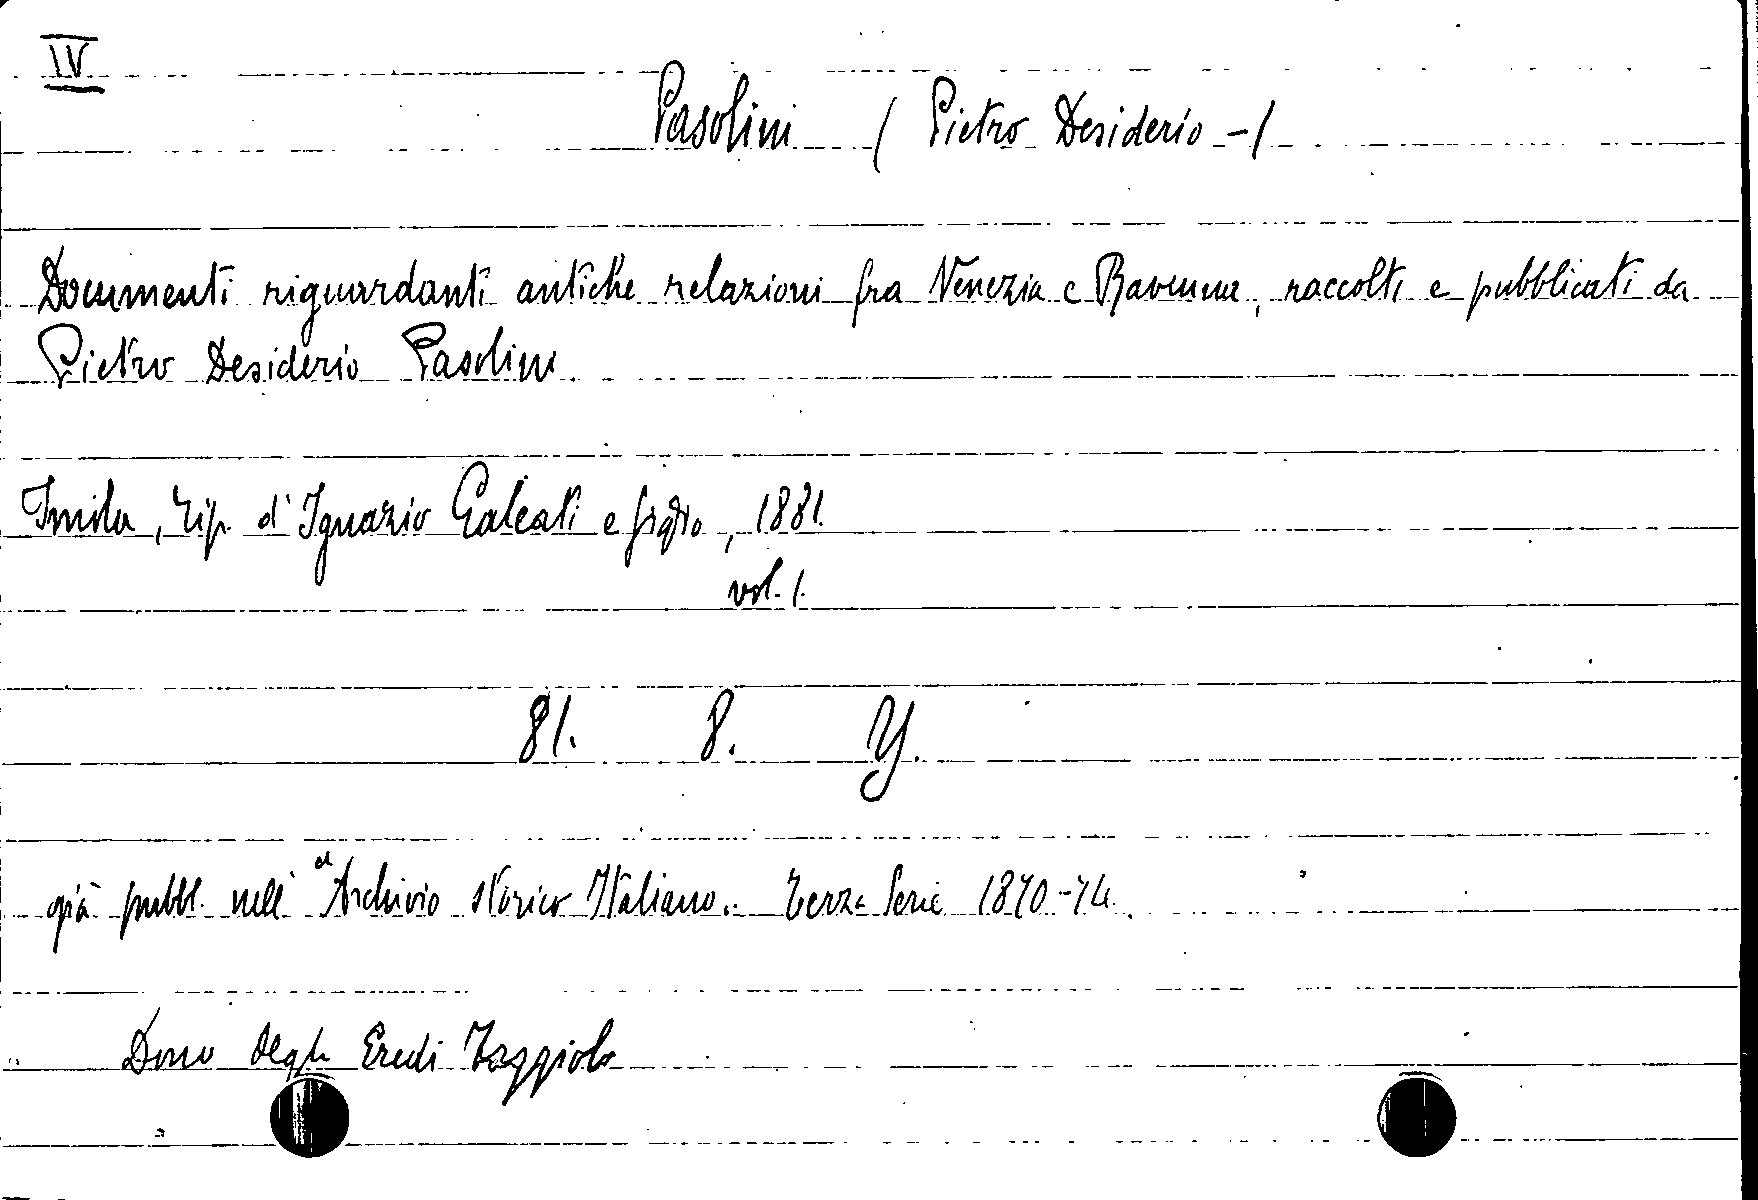 IV
Pasolini (Pietro Desiderio -)
Documenti riguardanti antiche relazioni fra Venezia e Ravenna, raccolti e pubblicati da
Pietro Desiderio Pasolini.
Imola, Tip. d'Ignazio Galeati e figlio, 1881.
vol. 1.
81. 8. Y.
già pubbl. nell' "Archivio storico Italiano.. Terza Serie 1870-74.
Dono degli Eredi